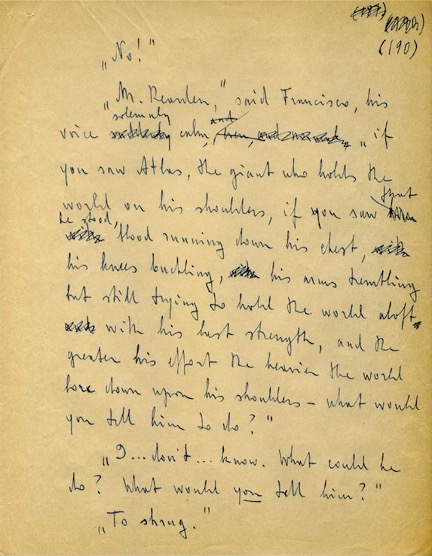 (190)
„No!"
„Mr. Rearden," said Francisco, his
solemnly
voice calm, „if
you saw Atlas, the giant who holds the
world on his shoulders, if you saw that
he stood, blood running down his chest,
his knees buckling, his arms trembling
but still trying to hold the world aloft
with his last strength, and the
greater his effort the heavier the world
bore down upon his shoulders – what would
you tell him to do?"
„I... don't... know. What could he
do? What would you tell him?"
„To shrug."